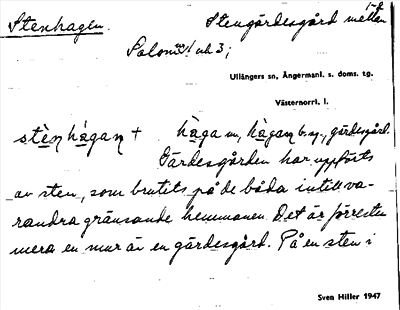 1-2
Stenhagen. Stengärdesgård mellan
Salom 1 och 3;
Ullångers sn, Ångermanl. s. doms. tg.
Västernorrl. l.
stèn̥hàgan̥ + hàga m, hàgan̥ b.sg., gärdesgård.
Gärdesgården har uppförts
av sten, som brutits på de båda intill va-
randra gränsande hemmanen. Det är förresten
mera en mur än en gärdesgård. På en sten i
Sven Hiller 1947